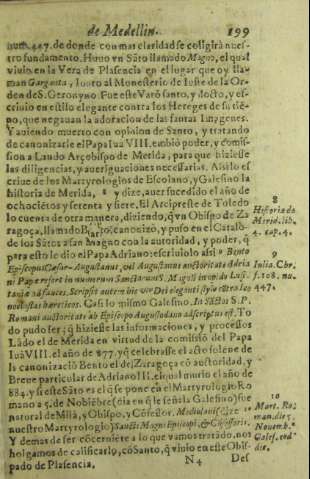 de Medellin. 199
num. 447. de donde con mas claridad se colligirà nues-
tro fundamento. Huuo en Sãto llamado Magno, el qual
viuio en la Vera de Plasencia en el lugar que oy llaman
man Garganta, junto al Monesterio de Iuste de la Or-
den de S. Geronymo. Fue este Varõ santo, y docto, y es-
criuio en estilo elegante contra los Hereges de su tiẽ-
po, que negauan la adoracion de las santas Imagenes.
Y auiendo muerto con opinion de Santo, y tratando
de canonizarle el Papa Iuã VIII. embiò poder, y comis-
sion a Laudo Arçobispo de Merida, para que hiziesse
las diligencias, y aueriguaciones necessarias. Assi lo es
criue de los Martyrologios de Escolano, y Galesino la
historia de Merida, 8 y dize, auer sucedido el año de
ochocientos y setenta y siete. El Arcipreste de Toledo
lo cuenta de otra manera, diziendo, q̃ vn Obispo de Za
ragoça, llamado Bẽto canonizò, y puso en el Catalo-
go de los Sãtos a san Magno con la autoridad, y poder, q̃
para esto le dio el Papa Adriano: escriuiolo assi 9 Bento
Episcopus Cæsar-Augustanus, vel Augustanus auctoritate Adria
ni Papæ refert in numerum Sanctorum S. Magni in op. du Lusi-
taniæ
molestas hæreticos. Casi lo mismo Galesino. In Sãctus S. P.
Romani auctoritate ab Episcopo Augustodano adscriptus est. To
do pudo ser; q̃ hiziesse las informaciones, y processos
Lãdo el de Merida en virtud de la comission del Papa
Iuã VIII. el año de 877. y q̃ celebrasse el acto solene de
la canonizaciõ Bento el de Zaragoça cõ autoridad, y
Breve particular de Adriano II. el qual murio el año de
884. y si este Sãto es el q̃ se pone en el Martyrologio Ro
mano a 5. de Nobiẽbre (dia en q̃ le señala Galesino) fue
natural de Milã, y Obispo, y Cõfessor. Mediolani (dize
nuestro Martyrologio) Sancti Magni Episcopi, & Cõfessoris.
Y demas de ser cõcerniẽte a lo que vamos tratado, nos
holgamos de calificarlo, cõ Santo, q̃ viuio en este Obis-
pado de Plasencia. N4 Des
8
Historia de
Merid. lib.
4. cap. 4.
9
Iulia. Chr.
f. 108. nu.
447.
10
Mart. Ro;
man. die 5.
Nouemb.
Gales. eod.
die.